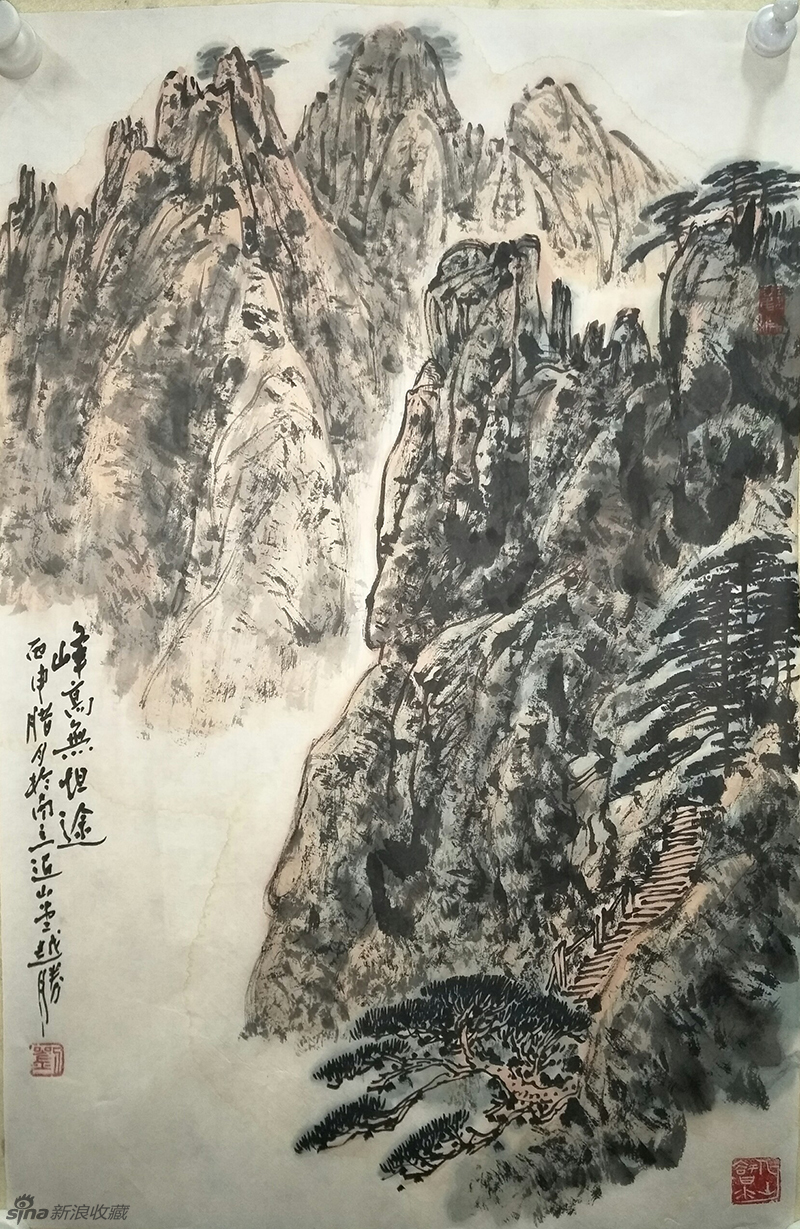 峰高無坦途
丙申腊月於南京近山堂越勝
劉
sina新浪收藏